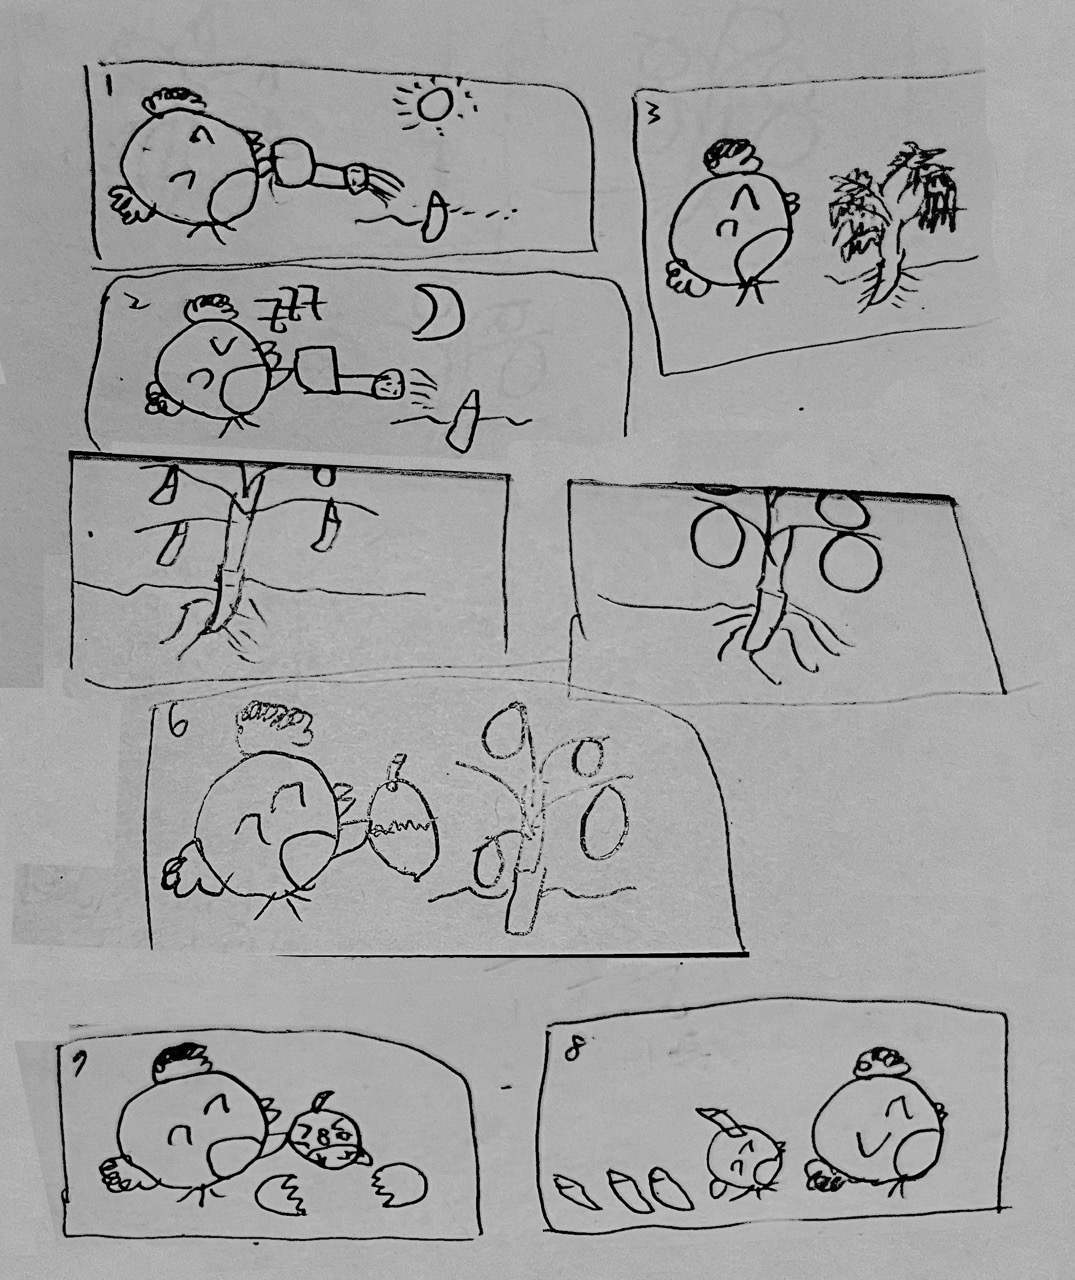 1
3
2
zzz
6
7
8